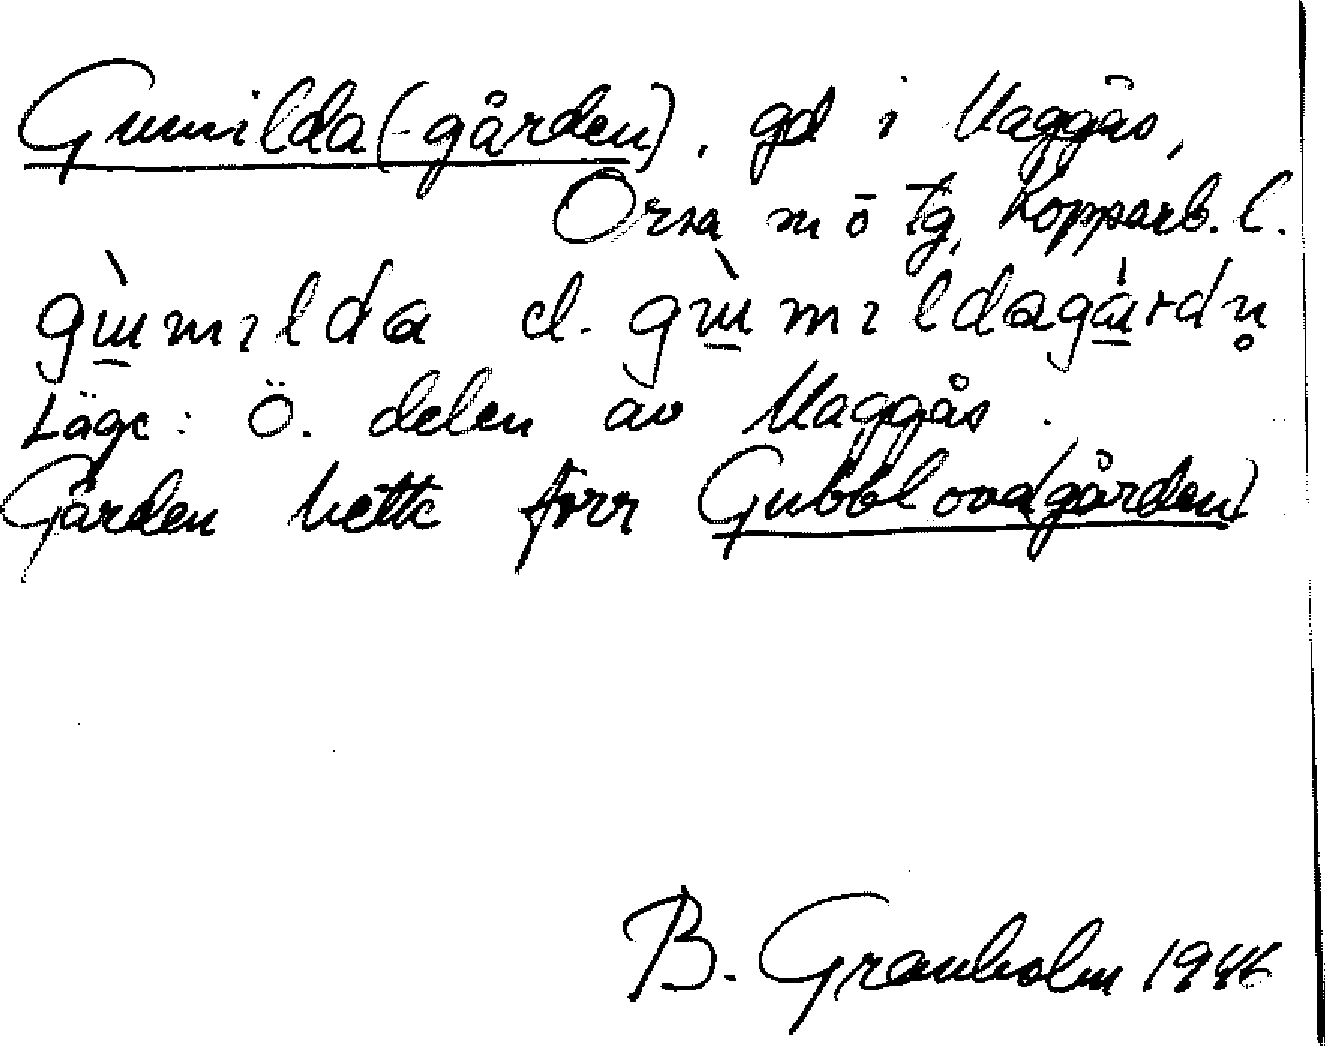 Gunnilda(-gården), gd i Maggås,
Orsa m ō tg, Kopparb. l.
gɯ̱̀mɩlda el. gɯ̱̀mɩldagá̱rdn̥
Läge: Ö. delen av Maggås.
Gården hette förr Gubblova(gården)
B. Granholm 1946